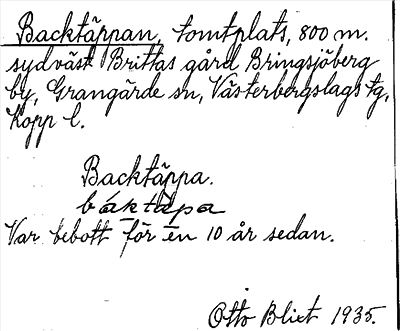 Backtäppan, tomtplats, 800 m.
sydväst Brittas gård Bringsjöberg
by, Grangärde sn, Västerbergslags tg,
Kopp l.
Backtäppa.
báktä̀pa
Var bebott för en 10 år sedan.
Otto Blixt 1935.